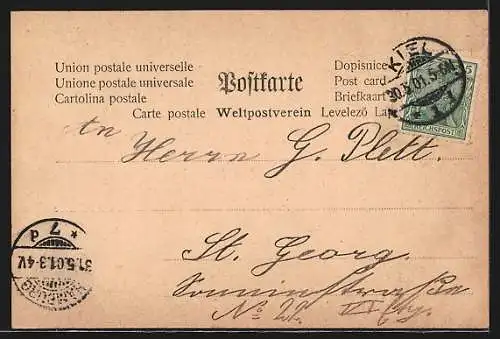 Union postale universelle
Unione postale universale
Cartolina postale
Postkarte
Dopisnice
Post card
Briefkaart
Carte postale Weltpostverein Levelező
KIEL
30.5.01.5-6N.
5
REICHSPOST
An
Herrn G. Plett.
St. Georg.
No
HAMBURG
31.5.01.3-4V
* 7 d